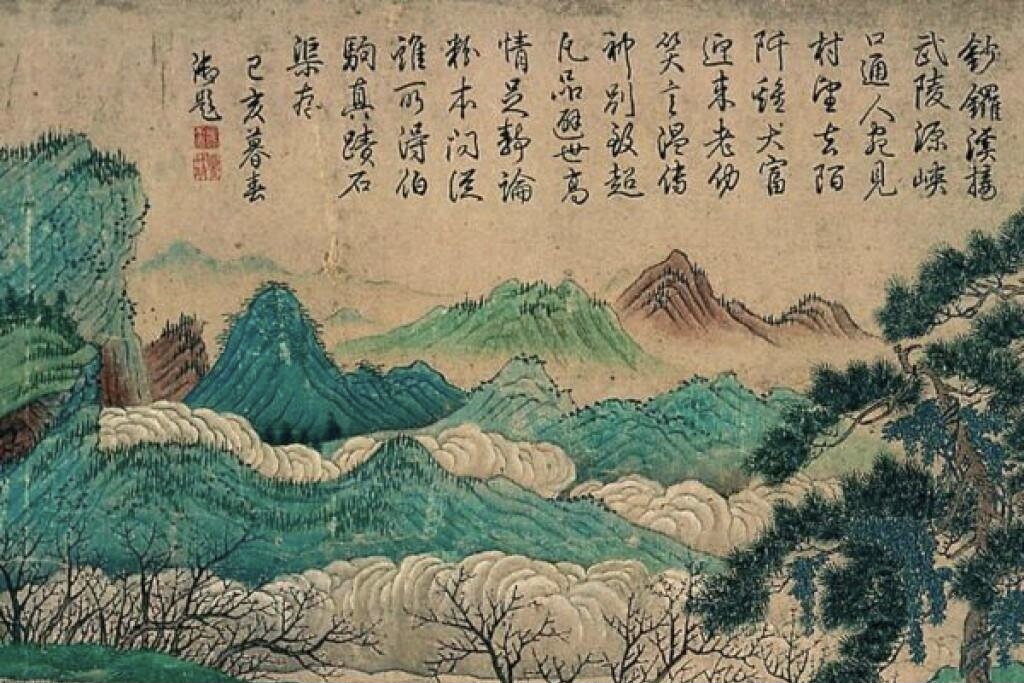 鈔鑼溪接
武陵源峽
口通人宛見
村望去陌
阡雞犬富
迎来老幼
笑言温傳
神别致超
凡品避世高
情足静論
粉本问從
誰所得伯
駒真蹟石
渠存
己亥暮春
御题